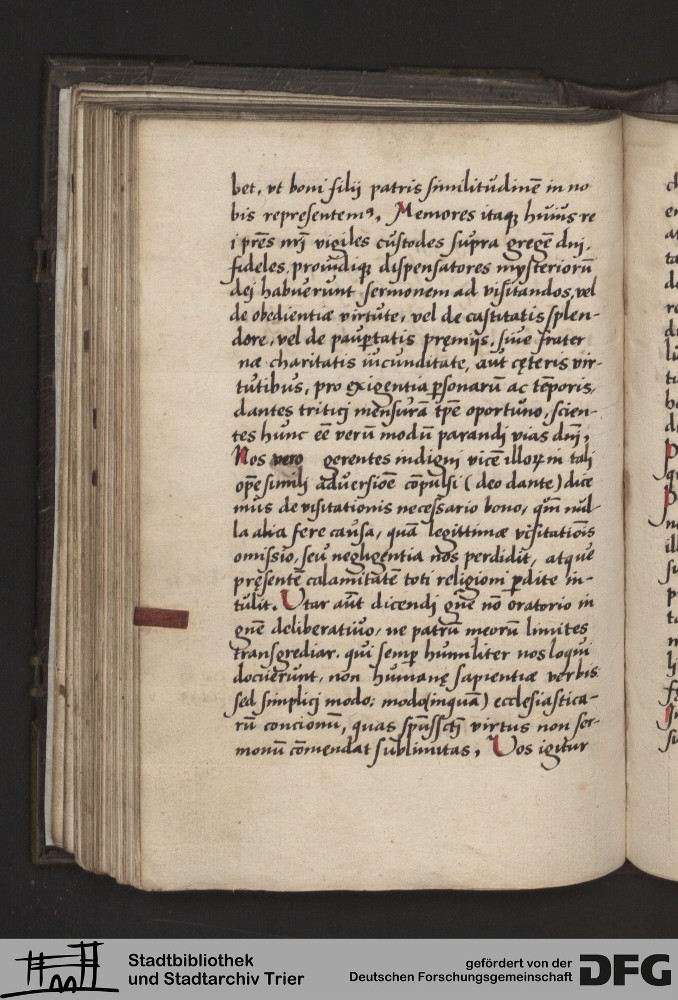 bet, vt boni filij patris similitudinē in no
bis representemꝰ. Memores itaqꝫ huius re
i prēs nrj vigiles custodes supra gregē dnj,
fideles, prouidiqꝫ dispensatores mysteriorū
dej habuerunt sermonem ad visitandos, vel
de obedientiæ virtute, vel de castitatis splen-
dore, vel de paup̱tatis pręmijs, siue frater
næ charitatis iucunditate, aut cęteris vir-
tutibus, pro exigentia p̱sonarū ac tēporis,
dantes triticj mensurā tp̄e oportuno, scien-
tes hunc eē verū modū parandi vias dnj,
Nos vero gerentes indigni vicē illoꝝ in talj
op̄e similj aduersioē cōpulsi (deo dante) dice
mus de visitationis necessario bono, qm̄ nul-
la alia fere causa, quā legittimæ visitatiōis
omissio, seu negligentia nos perdidit, atque
pręsentē calamitatē toti religioni p̱dite in-
tulit. Utar aūt dicendj gn̄e nō oratorio in
gn̄e deliberatiuo, ne patrū meorū limites
transgrediar. qui semp̱ humiliter nos loqui
docuerunt, non humanę sapientiæ verbis
sed simplicj modo: modo (inquā) ecclesiastica-
rū concionū, quas spūssctj virtus non ser-
monū cōmendat sublimitas, Uos igitur
Stadtbibliothek
und Stadtarchiv Trier
gefördert von der
Deutschen Forschungsgemeinschaft
DFG